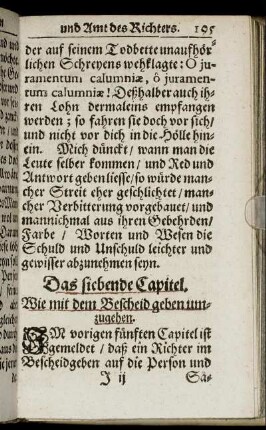 und Amt des Richters. 195
der auf seinem Todbette unaufhör⸗
lichen Schreyens wehklagte: O ju⸗
ramentum calumniæ, ô juramen⸗
tum calumniæ! Deßhalber auch ih⸗
ren Lohn dermaleins empfangen
werden; so fahren sie doch vor sich/
und nicht vor dich in die Hölle hin⸗
ein. Mich dünckt/ wann man die
Leute selber kommen/ und Red und
Antwort geben liesse/ so würde man⸗
cher Streit eher geschlichtet/ man⸗
cher Verbitterung vorgebauet/ und
mannichmal aus ihren Gebehrden/
Farbe/ Worten und Wesen die
Schuld und Unschuld leichter und
gewisser abzunehmen seyn.
Das siebende Capitel.
Wie mit dem Bescheid geben um⸗
zugehen.
IM vorigen fünften Capitel ist
gemeldet/ daß ein Richter im
Bescheidgeben auf die Person und
J ij Sa⸗